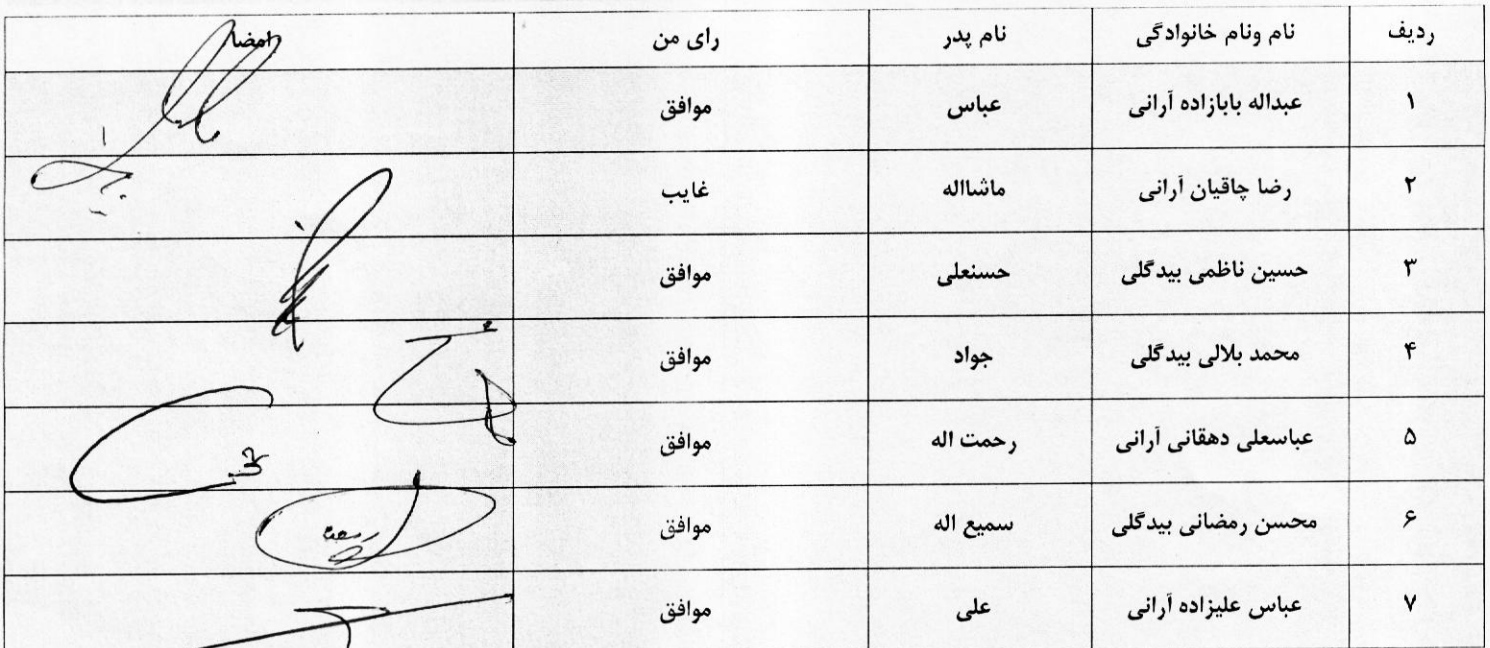 ردیف نام ونام خانوادگی نام پدر رای من امضا
۱ عبداله بابازاده آرانی عباس موافق
۲ رضا چاقیان آرانی ماشااله غایب
۳ حسین ناظمی بیدگلی حسنعلی موافق
۴ محمد بلالی بیدگلی جواد موافق
۵ عباسعلی دهقانی آرانی رحمت اله موافق
۶ محسن رمضانی بیدگلی سمیع اله موافق
۷ عباس علیزاده آرانی علی موافق